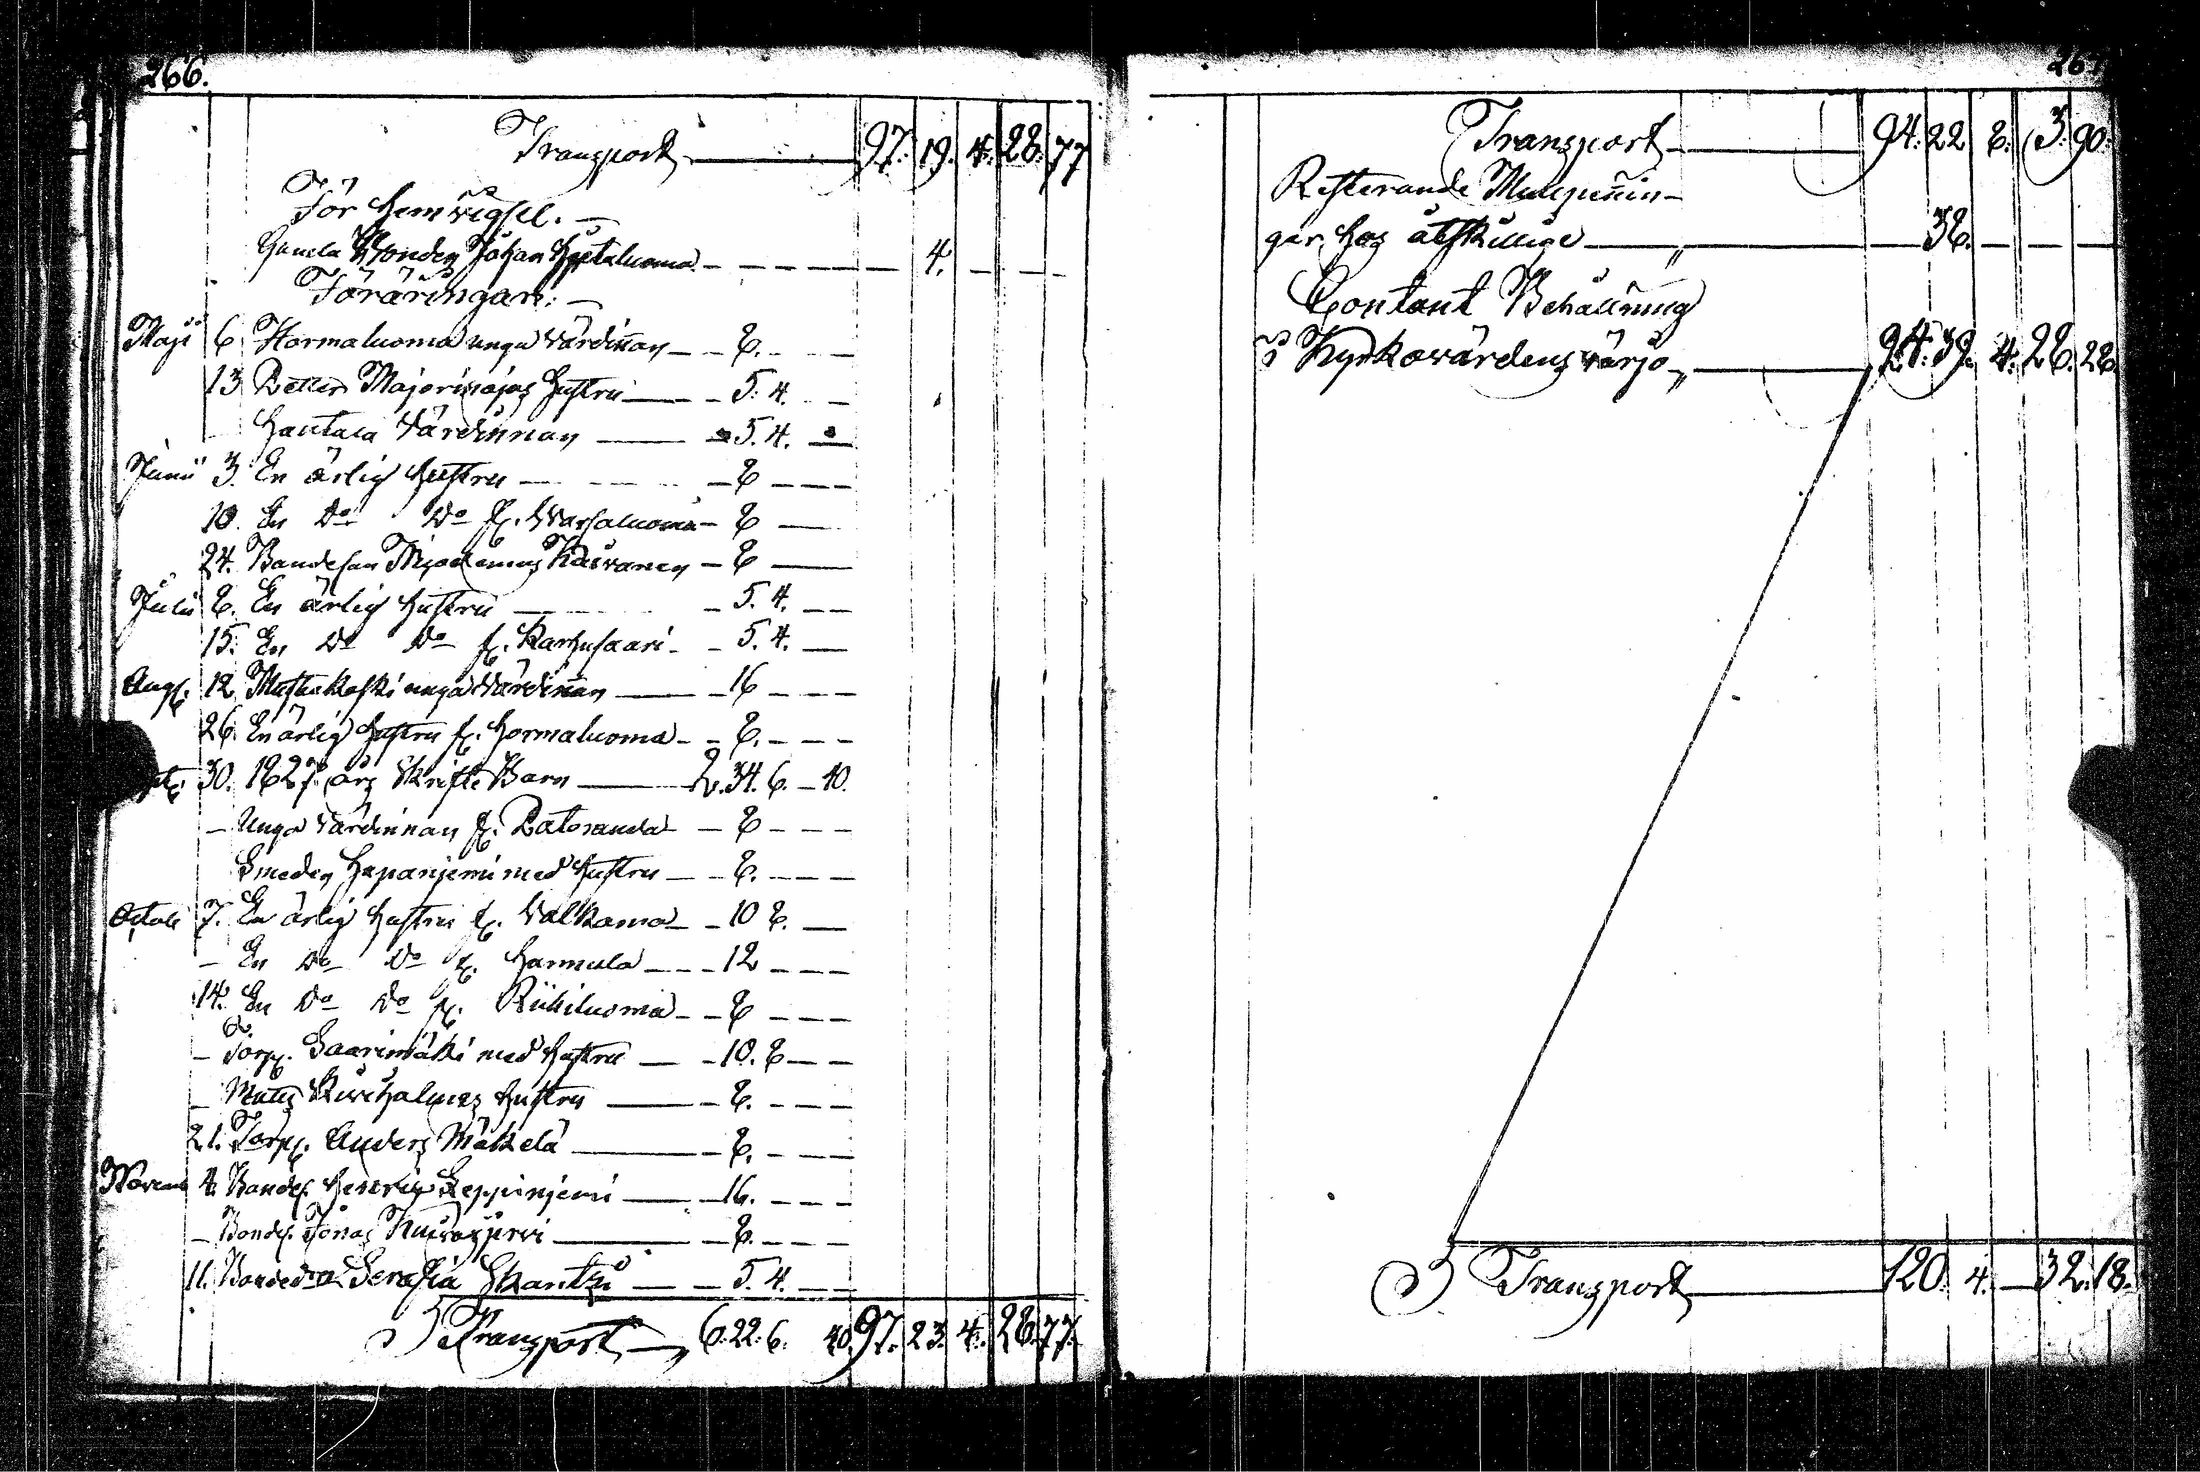 266.
Transport 97. 19. 4. 28. 77
För hemvigsel. —
Gamla Bonden Johan — 4.
Föräringar: —
Maji 6 Hormaluoma unga värdinnan — 8.
13 Petter Majorivajas hustru — 5. 4.
Hantala Värdinnan — 5. 4.
Junii 3. En ärlig hustru — 8
10. En Do Do fr. Warsaluoma — 8
24. Bondeson — 8
Julii 8. En ärlig hustru — 5. 4.
15. En Do Do fr. Karhusaari — 5. 4.
Aug. 12 Mustakoski unga Värdinnan — 16
26. En ärlig hustru fr. Hormaluoma — 8.
30. 1827 års Skrifte Barn — 2. 34. 6. — 10.
— Unga Värdinnan fr. Latoranda — 8
Smeden Hapanjemi med hustru — 8.
Octob 7. En ärlig hustru fr. Valkama — 10 8.
— En Do Do fr. Hannula — 12
14. En Do Do fr. Riihiluoma — 8
— Torp. Saarimäki med hustru — 10. 8
— Matts hustru — 8.
21. Torp. Anders Mäkelä — 8.
Novemb 4. Bondes. Henric Leppinjemi — 16.
— Bondes. Jonas — 8.
11. Bonded:r Serafia Skantzi — 5. 4.
Transport — 6. 22. 6. 40. 97. 23. 4. 28. 77.
267
Transport 94. 22 8. 3. 90.
Resterande Mulpennin-
gar hos åtskillige — 38.
Contant Behållning
i Kyrkovärdens värjo — 24. 39. 4. 28. 28
Transport 120. 4. — 32. 18.